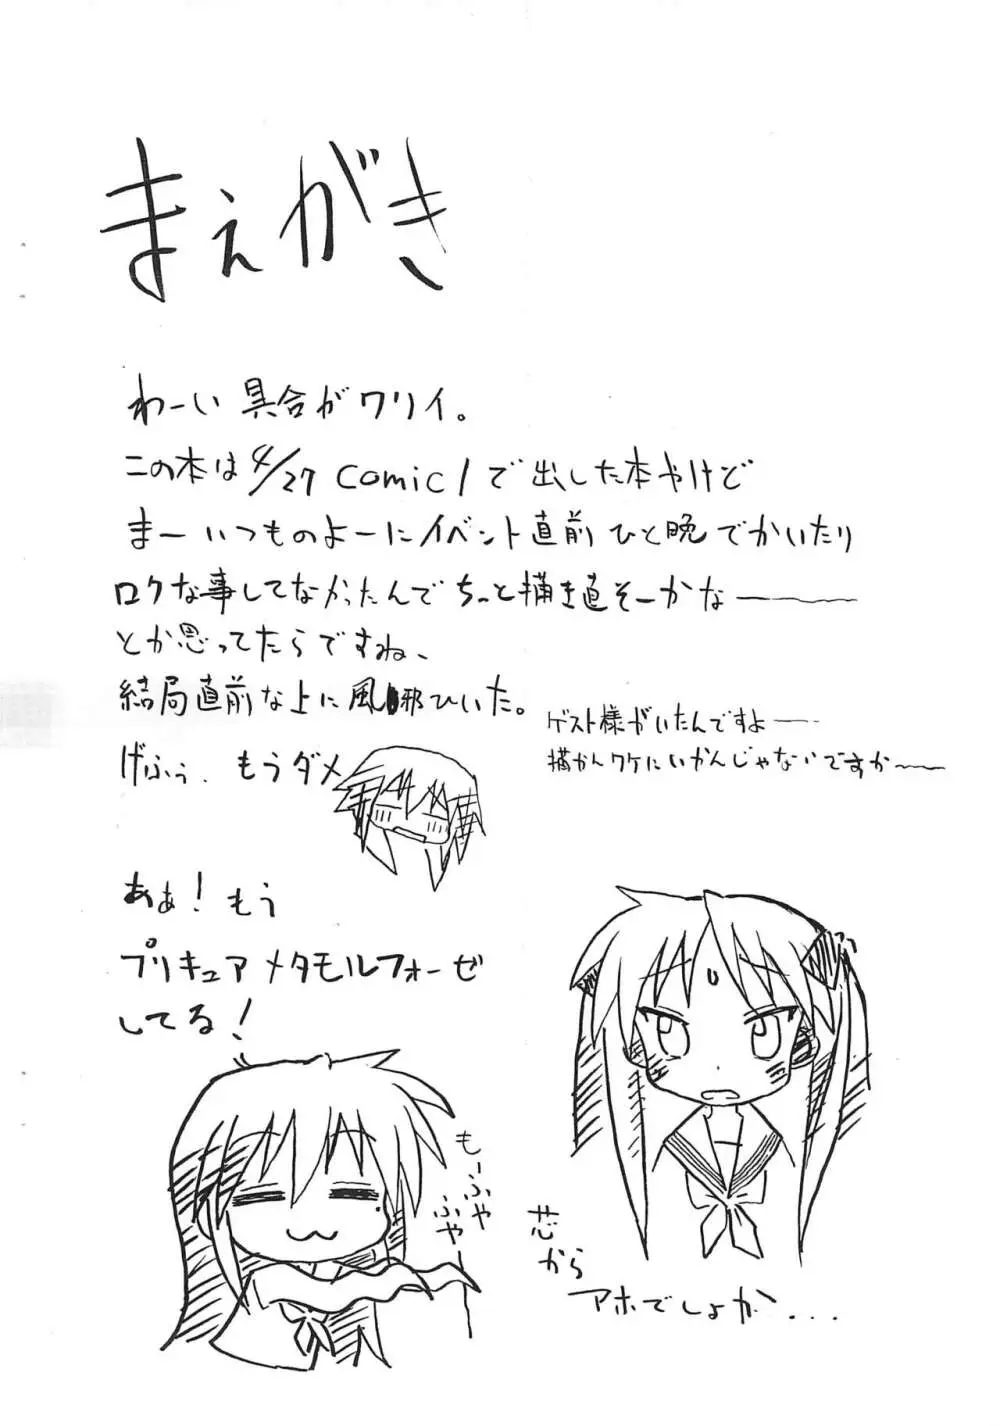 まえがき
わーい 具合がワリイ。
この本は4/27 comic1で出した本やけど
まーいつものよーにイベント直前ひと晩でかいたり
ロクな事してなかったんでちっと描き直そーかなー
とか思ってたらですね、
結局直前な上に風邪ひいた。
ゲスト様がいたんですよー
描かんワケにいかんじゃないですかー
げふぅ、もうダメ
あぁ!もう
プリキュアメタモルフォーゼ
してる!
もーふや
ふやー
芯から
アホでしょか...